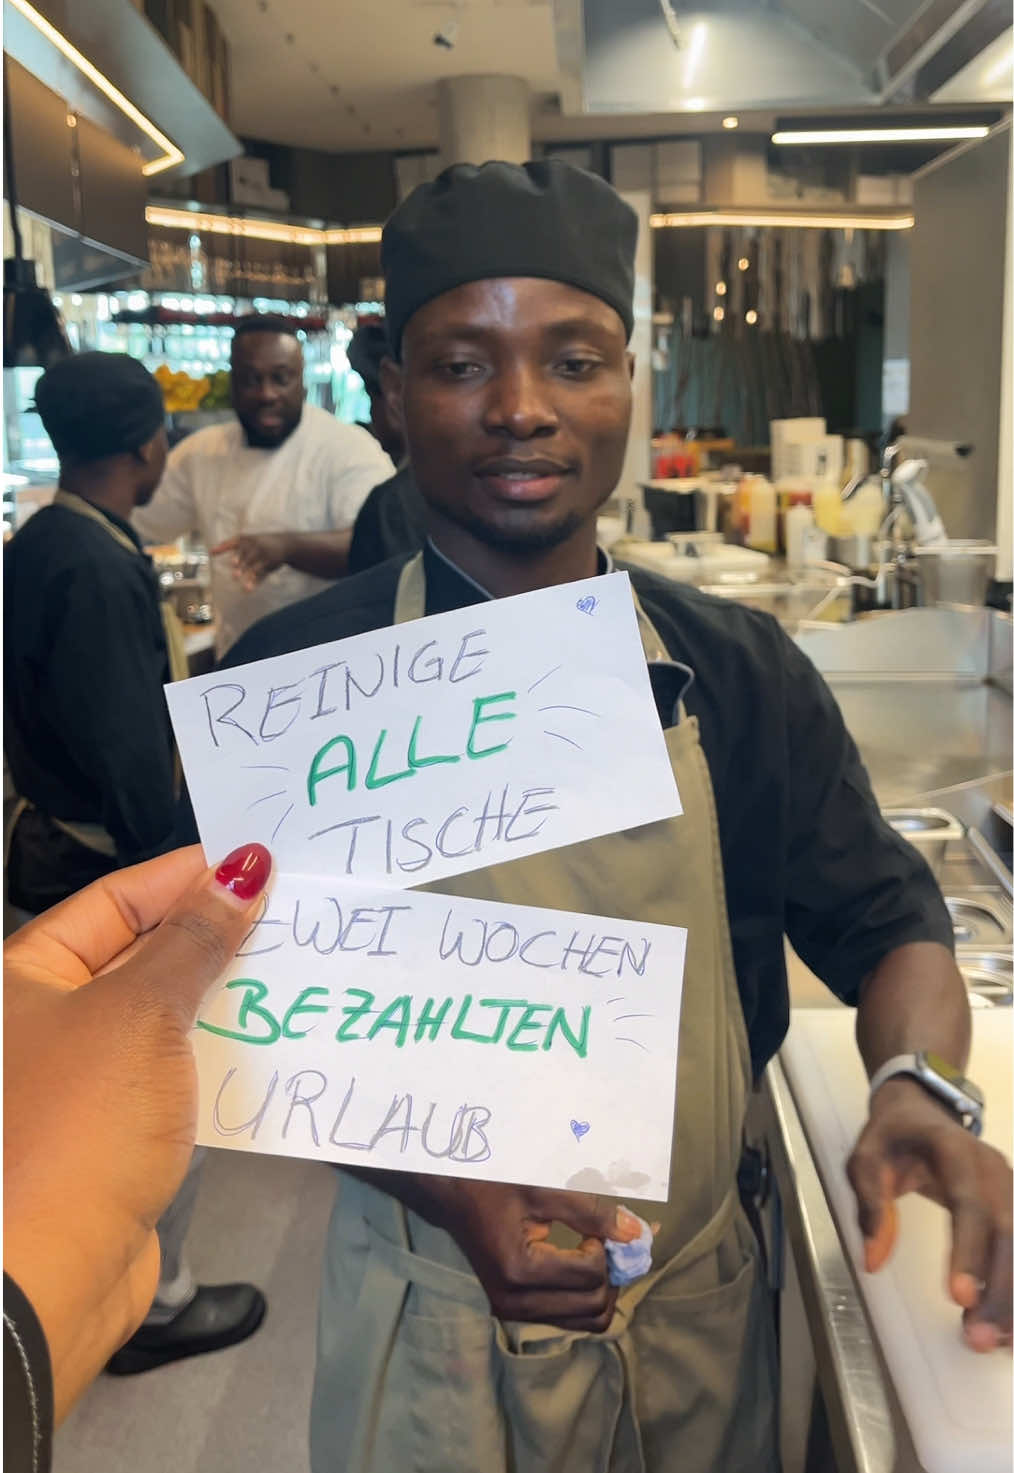 REINIGE
ALLE
TISCHE
ZWEI WOCHEN
BEZAHLTEN
URLAUB